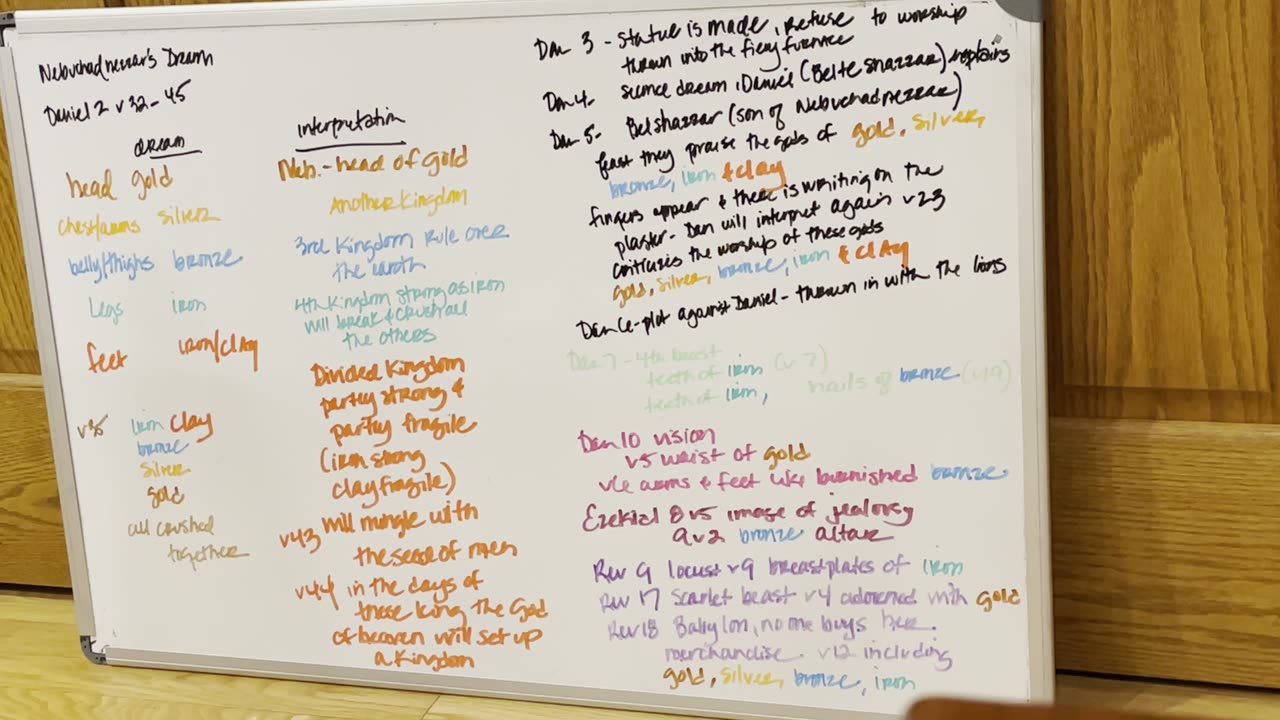 Nebuchadnezzar's Dream
Daniel 2 v32-45
dream
head gold
chest/arms silver
belly/thighs bronze
Legs iron
feet iron/clay
v35 iron clay
bronze
silver
gold
all crushed
together
interpretation
Neb.-head of gold
Another Kingdom
3rd Kingdom Rule over
the earth
4th Kingdom strong as iron
will break & crush all
the others
Divided Kingdom
partly strong &
partly fragile
(iron strong
clay fragile)
v43 will mingle with
the seed of men
v44 in the days of
these king the God
of heaven will set up
a Kingdom
Dan 3 - Statue is made, Refuse to worship
thrown into the fiery furnace
Dan 4- dream, Daniel (Belteshazzar)
Dan 5- Belshazzar (son of Nebuchadnezzar)
feast they praise the gods of gold, silver,
bronze, iron & clay
fingers appear & there is writing on the
plaster- Dan will interpret again v23
the worship of these gods
gold, silver, bronze, iron & clay
Dan 6-plot against Daniel - thrown in with the lions
Dan 7 - 4th beast
teeth of iron (v7)
teeth of iron, nails of bronze (v19)
Dan 10 vision
v5 waist of gold
v6 arms & feet like burnished bronze
Ezekial 8v5 image of jealousy
9v2 bronze altar
Rev 9 locust v9 breastplates of iron
Rev 17 Scarlet beast v4 adorned with gold
Rev 18 Babylon, no one buys her
merchandise. v12 including
gold, silver, bronze, iron